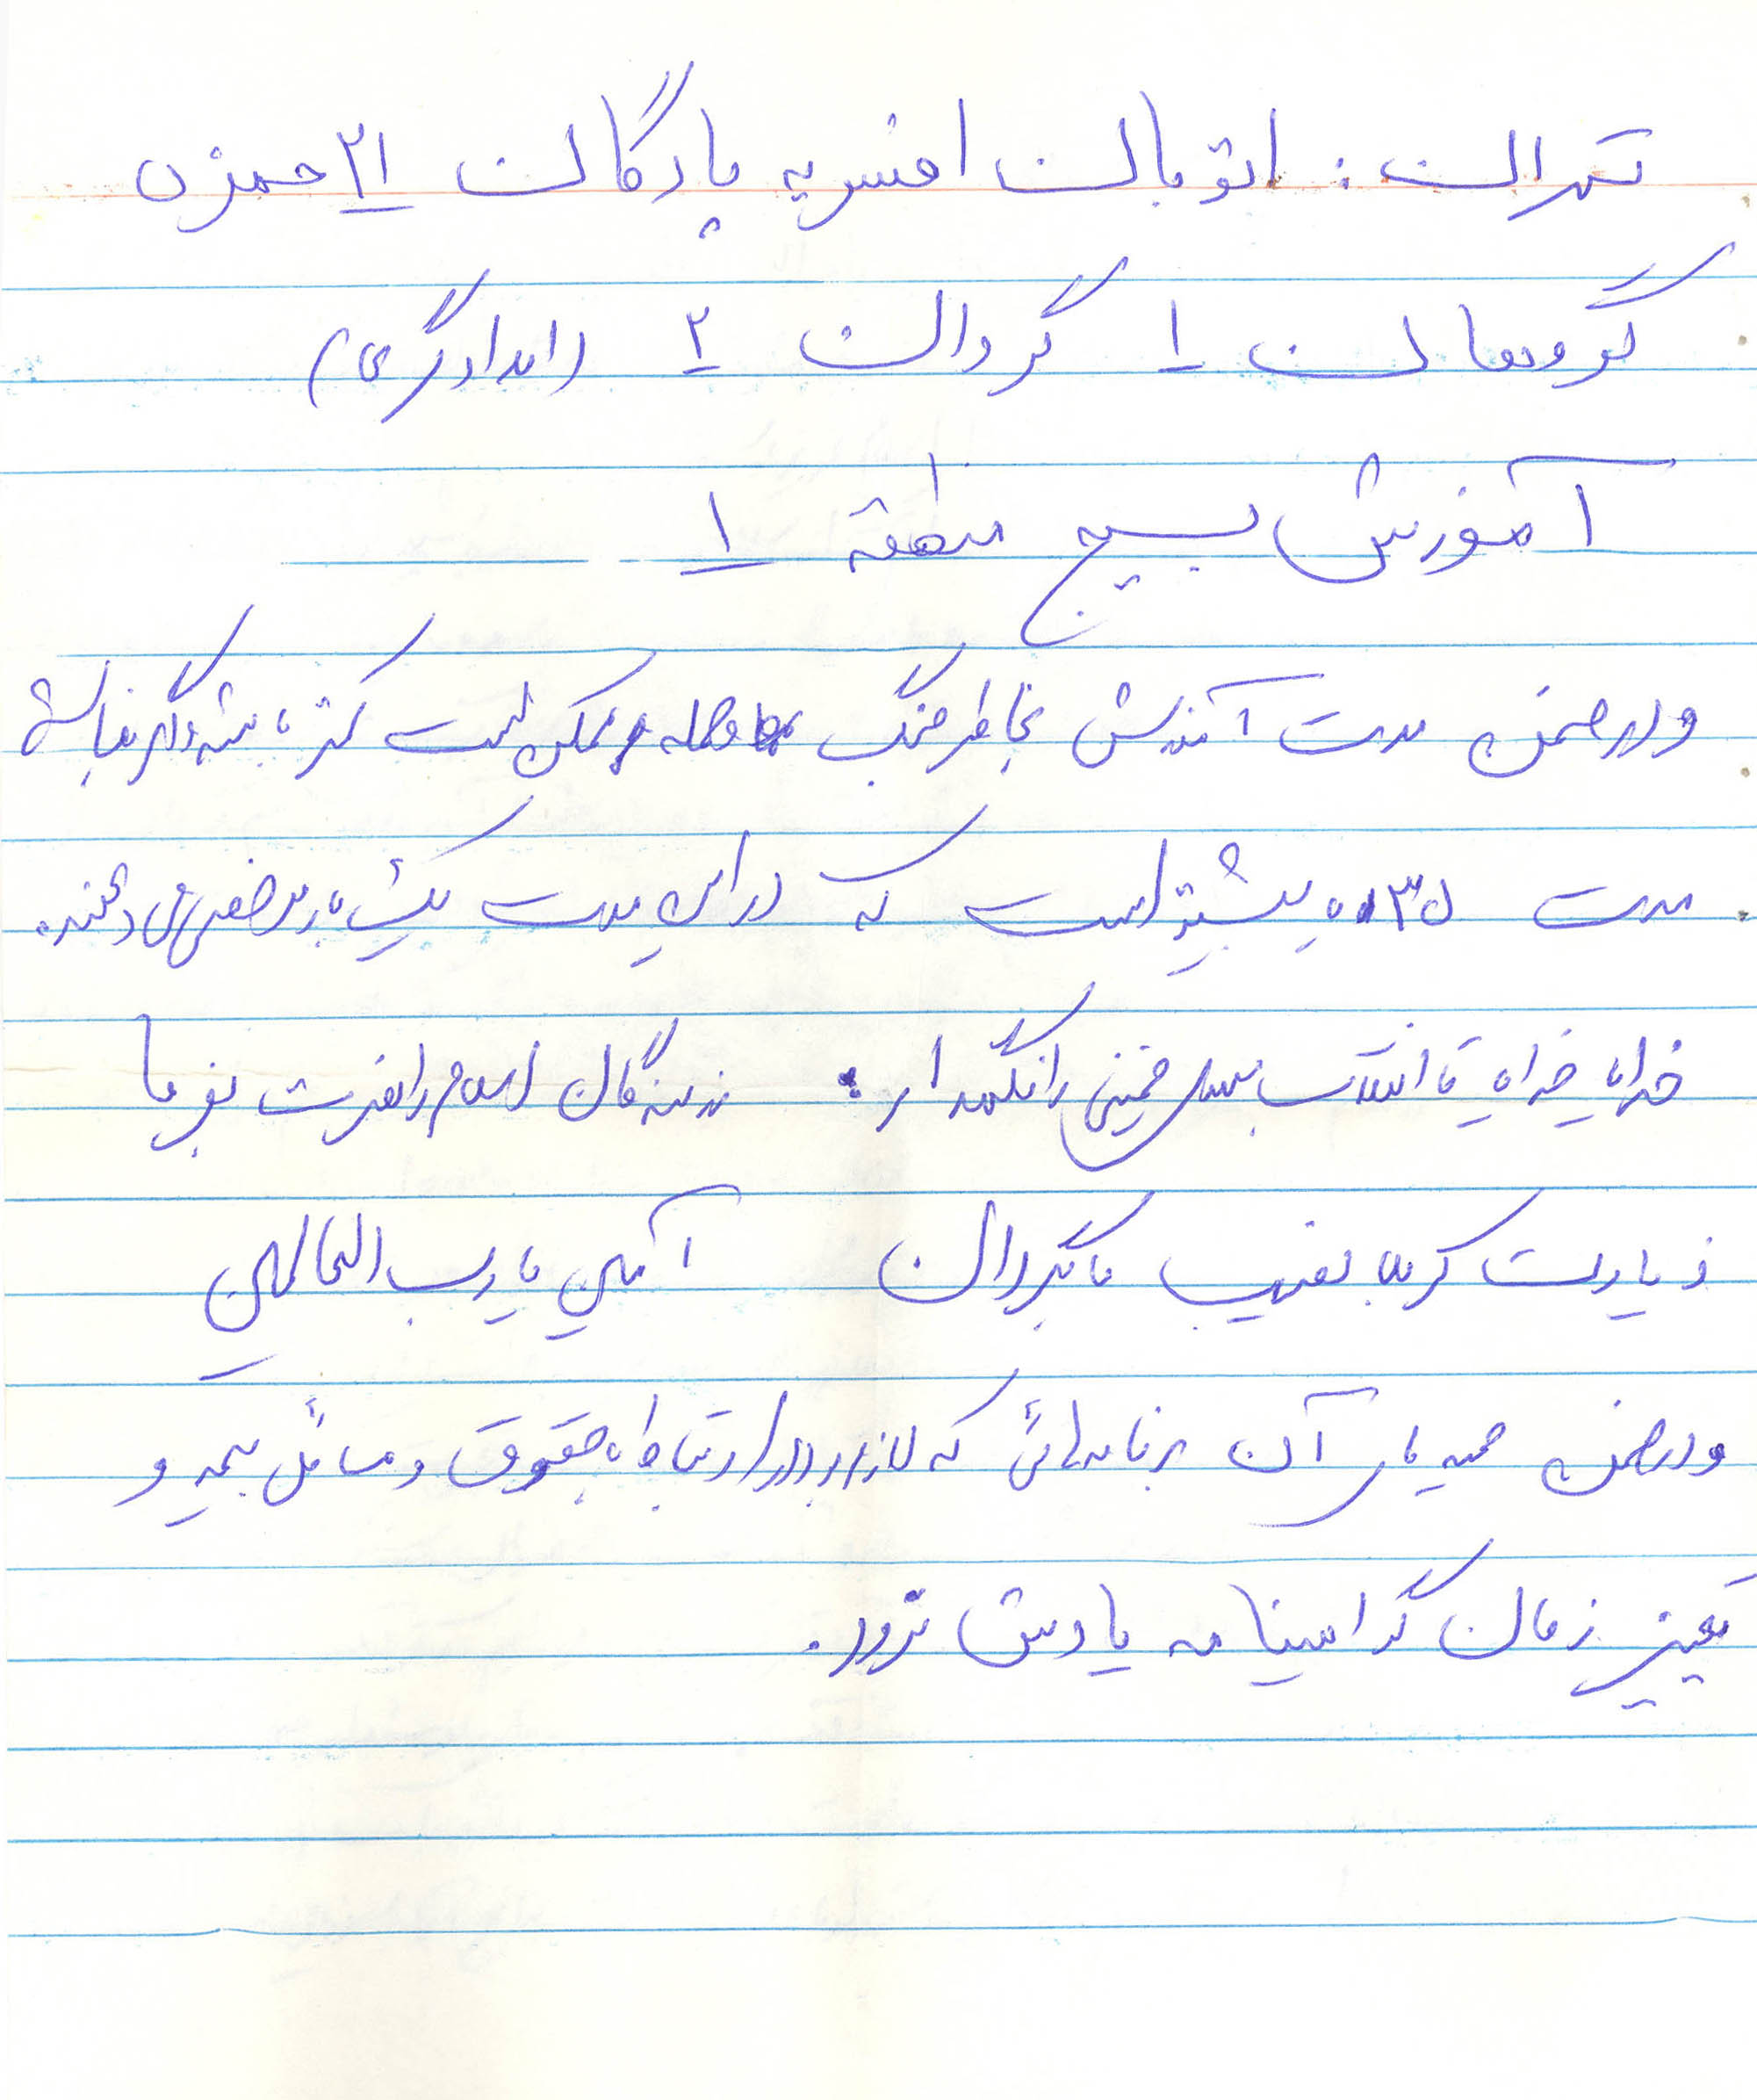 تهران : اتوبان افسریه پادگان ۲۱ حمزه
گروهان ۱ گردان ۲ (امدادگری)
آموزش بسیج منطقه ۱
و در ضمن مدت آموزش بخاطر جنگ و حمله ممکن است کمتر باشد و اگر نباشد
مدت ۳۵ بیشتر است که در این مدت یکبار مرخصی می دهند.
خدایا خدایا تا انقلاب مهدی خمینی را نگهدار . رزمندگان اسلام را نصرت بفرما
زیارت کربلا نصیب ما بگردان آمین یا رب العالمین
و در ضمن حمید بابت آن برنامه هائی که لازم بود در ارتباط با حقوق و مسائل بیمه و
تعیین زمان گرامینامه یادش نرود.